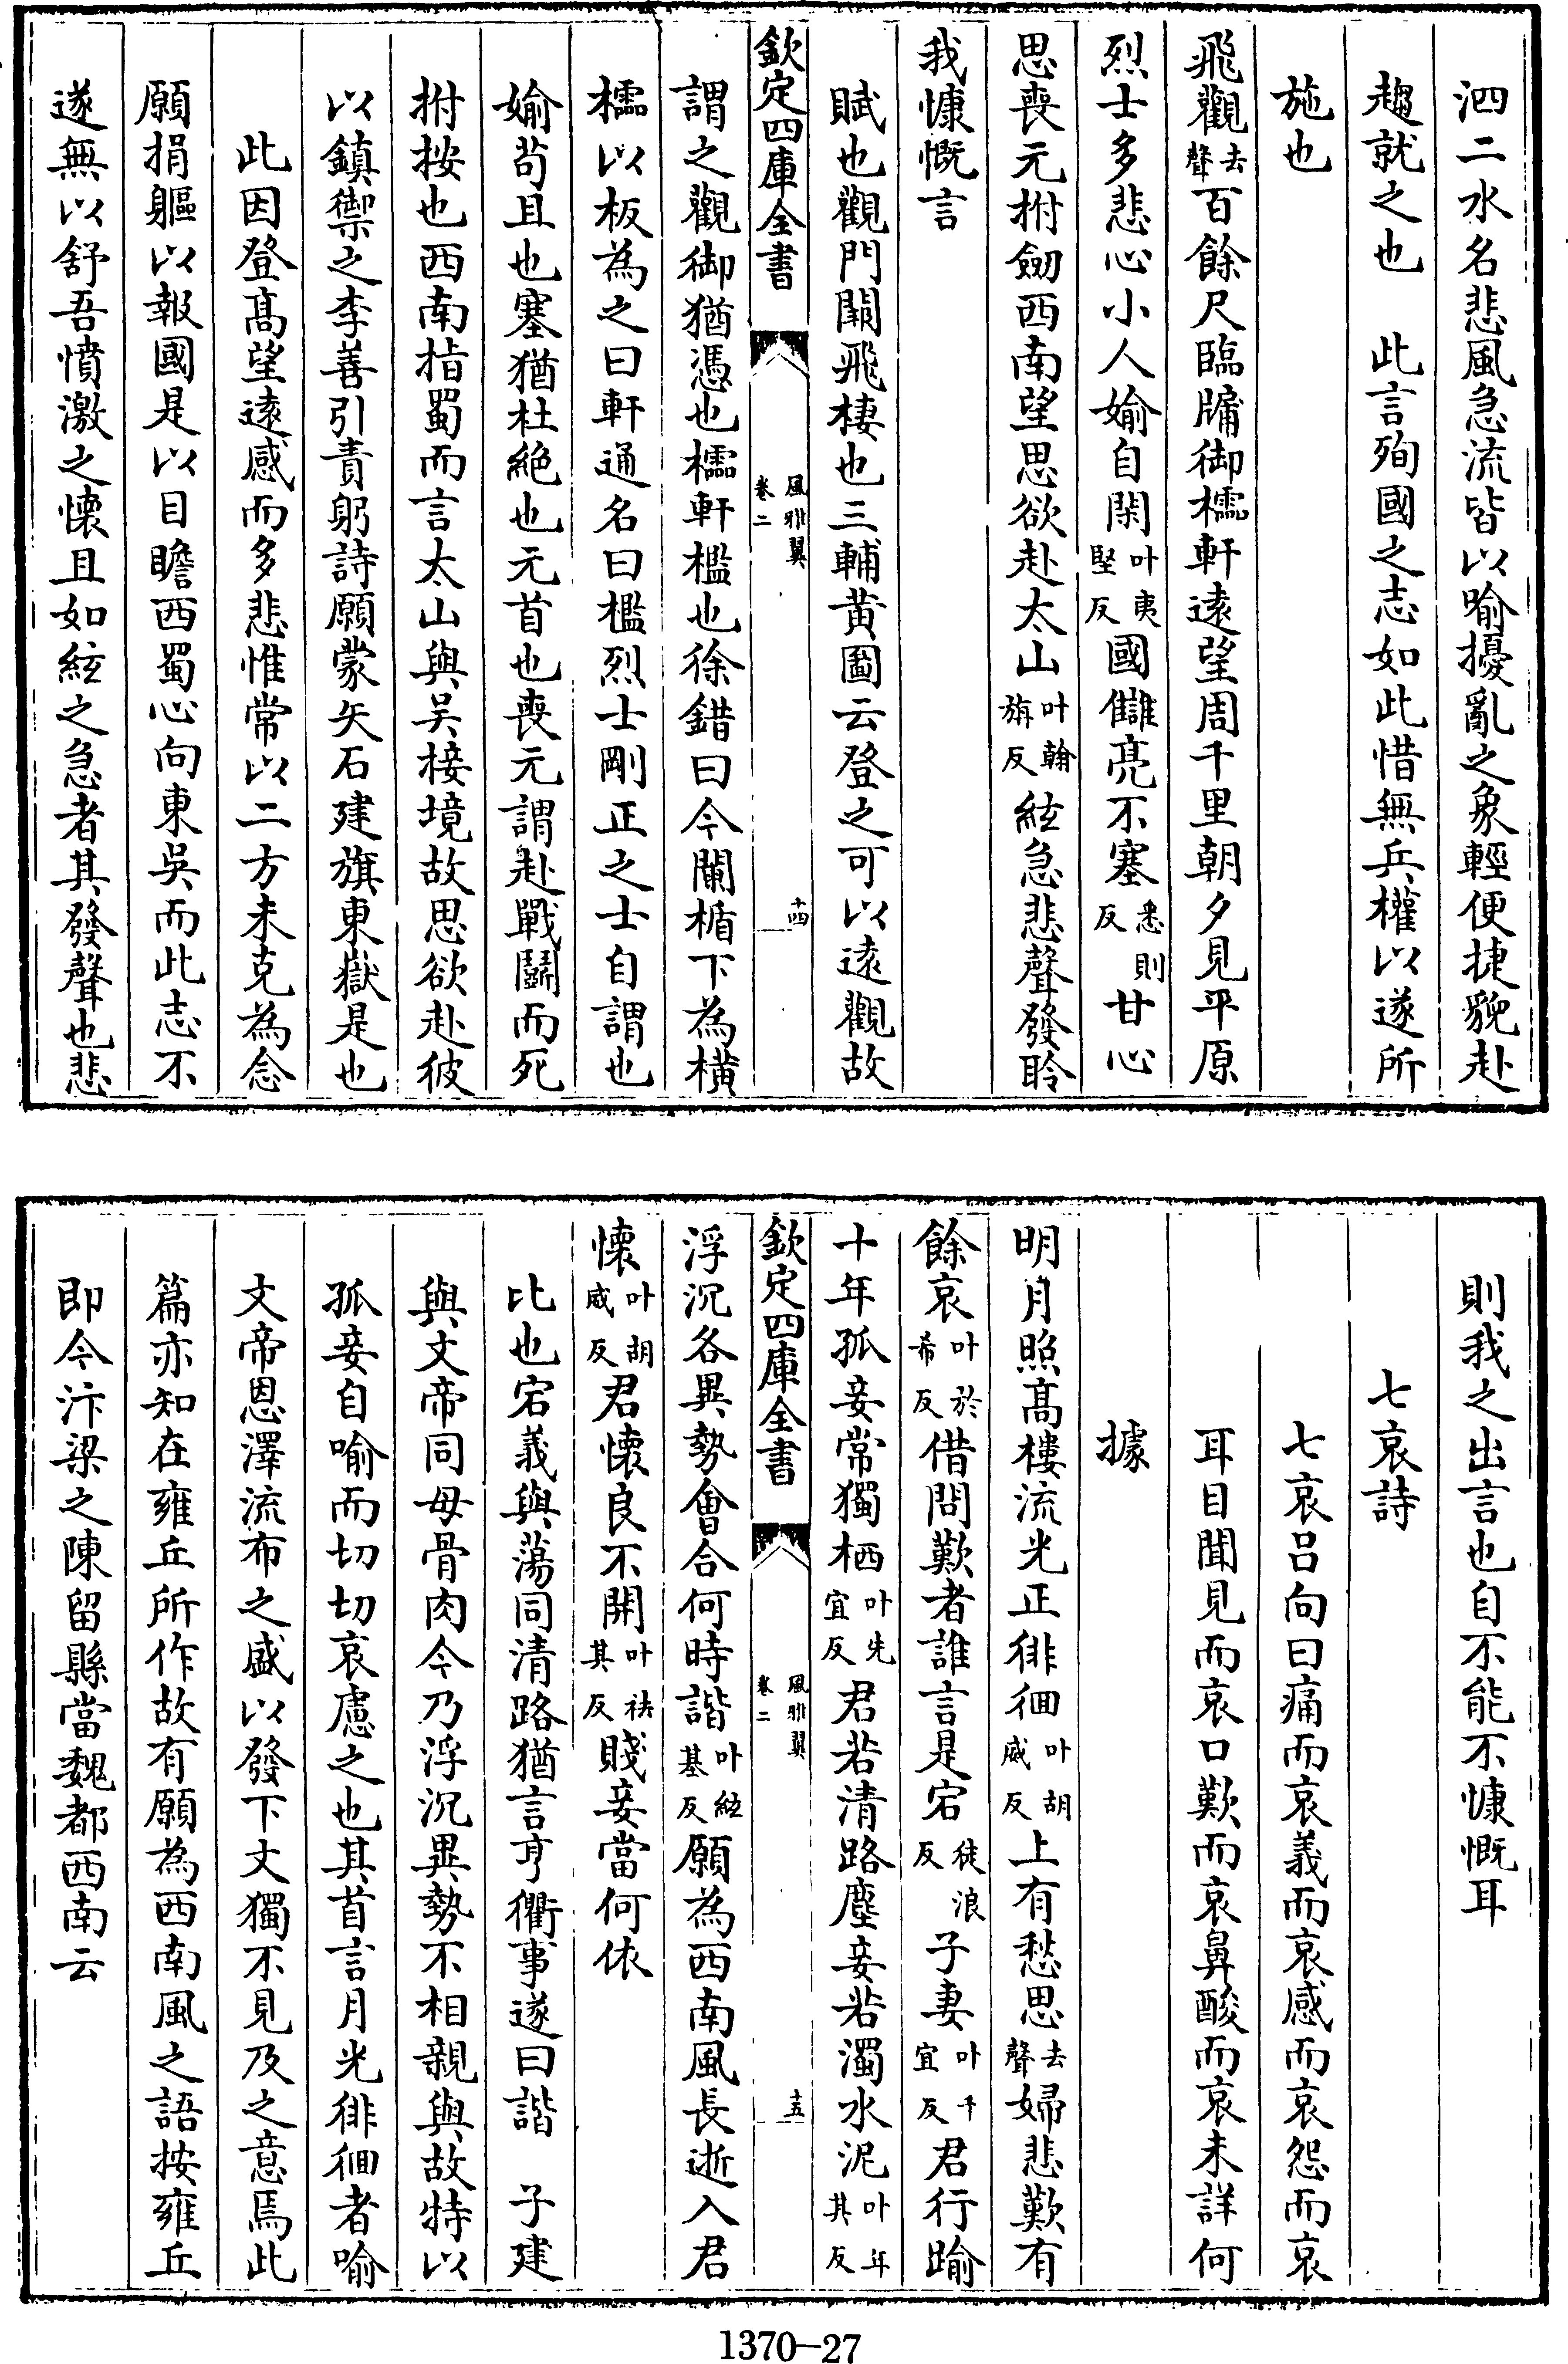 泗二水名悲風急流皆以喻擾亂之象輕便捷貌赴
趨就之也　此言殉國之志如此惜無兵權以遂所
施也
飛觀去聲百餘尺臨牖御櫺軒遠望周千里朝夕見平原
烈士多悲心小人媮自閑叶夷堅反國讎亮不塞悉則反甘心
思喪元拊劒西南望思欲赴太山叶翰旃反絃急悲聲發聆
我慷慨言
賦也觀門闕飛棲也三輔黄圖云登之可以遠觀故
欽定四庫全書
風雅翼
卷二
十四
謂之觀御猶憑也櫺軒檻也徐錯曰今闌楯下為横
櫺以板為之曰軒通名曰檻烈士剛正之士自謂也
媮苟且也塞猶杜絶也元首也喪元謂赴戰鬭而死
拊按也西南指蜀而言太山與吴接境故思欲赴彼
以鎮禦之李善引責躬詩願蒙矢石建旗東嶽是也
此因登髙望逺感而多悲惟常以二方未克為念
願捐軀以報國是以目瞻西蜀心向東吳而此志不
遂無以舒吾憤激之懐且如絃之急者其發聲也悲
則我之出言也自不能不慷慨耳
七哀詩
七哀吕向曰痛而哀義而哀感而哀怨而哀
耳目聞見而哀口歎而哀鼻酸而哀未詳何
據
明月照髙樓流光正徘徊叶胡威反上有愁思去聲婦悲歎有
餘哀叶於希反借問歎者誰言是宕徒浪反子妻叶千宜反君行踰
十年孤妾常獨栖叶先宜反君若清路塵妾若濁水泥叶年其反
欽定四庫全書
風雅翼
卷二
十五
浮沉各異勢會合何時諧叶絃基反願為西南風長逝入君
懐叶胡威反君懐良不開叶袪其反賤妾當何依
比也宕義與蕩同清路猶言亨衢事遂曰諧　子建
與文帝同母骨肉今乃浮沉異勢不相親與故特以
孤妾自喻而切切哀慮之也其首言月光徘徊者喻
文帝恩澤流布之盛以發下文獨不見及之意焉此
篇亦知在雍丘所作故有願為西南風之語按雍丘
即今汴梁之陳留縣當魏都西南云
1370—27